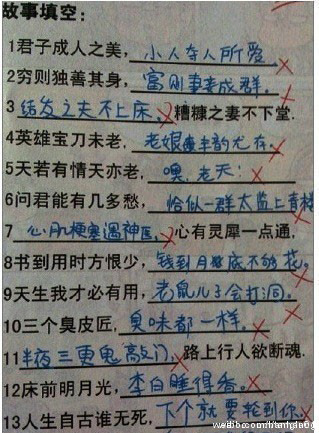 故事填空:
1君子成人之美, 小人夺人所爱 ×
2穷则独善其身, 富则妻妾成群. ×
3 结发之夫不上床、 × 糟糠之妻不下堂.
4英雄宝刀未老, 老娘风韵尤存. ×
5天若有情天亦老, 噢,老天! ×
6问君能有几多愁, 恰似一群太监上青楼 ×
7 心肌梗塞遇神医, × 心有灵犀一点通,
8书到用时方恨少, 钱到月底不够花. ×
9天生我才必有用, 老鼠儿子会打洞. ×
10三个臭皮匠, 臭味都一样。 ×
11 半夜三更鬼敲门, × 路上行人欲断魂.
12床前明月光, 李白睡得香。 ×
13人生自古谁无死, 下个就要轮到你. ×